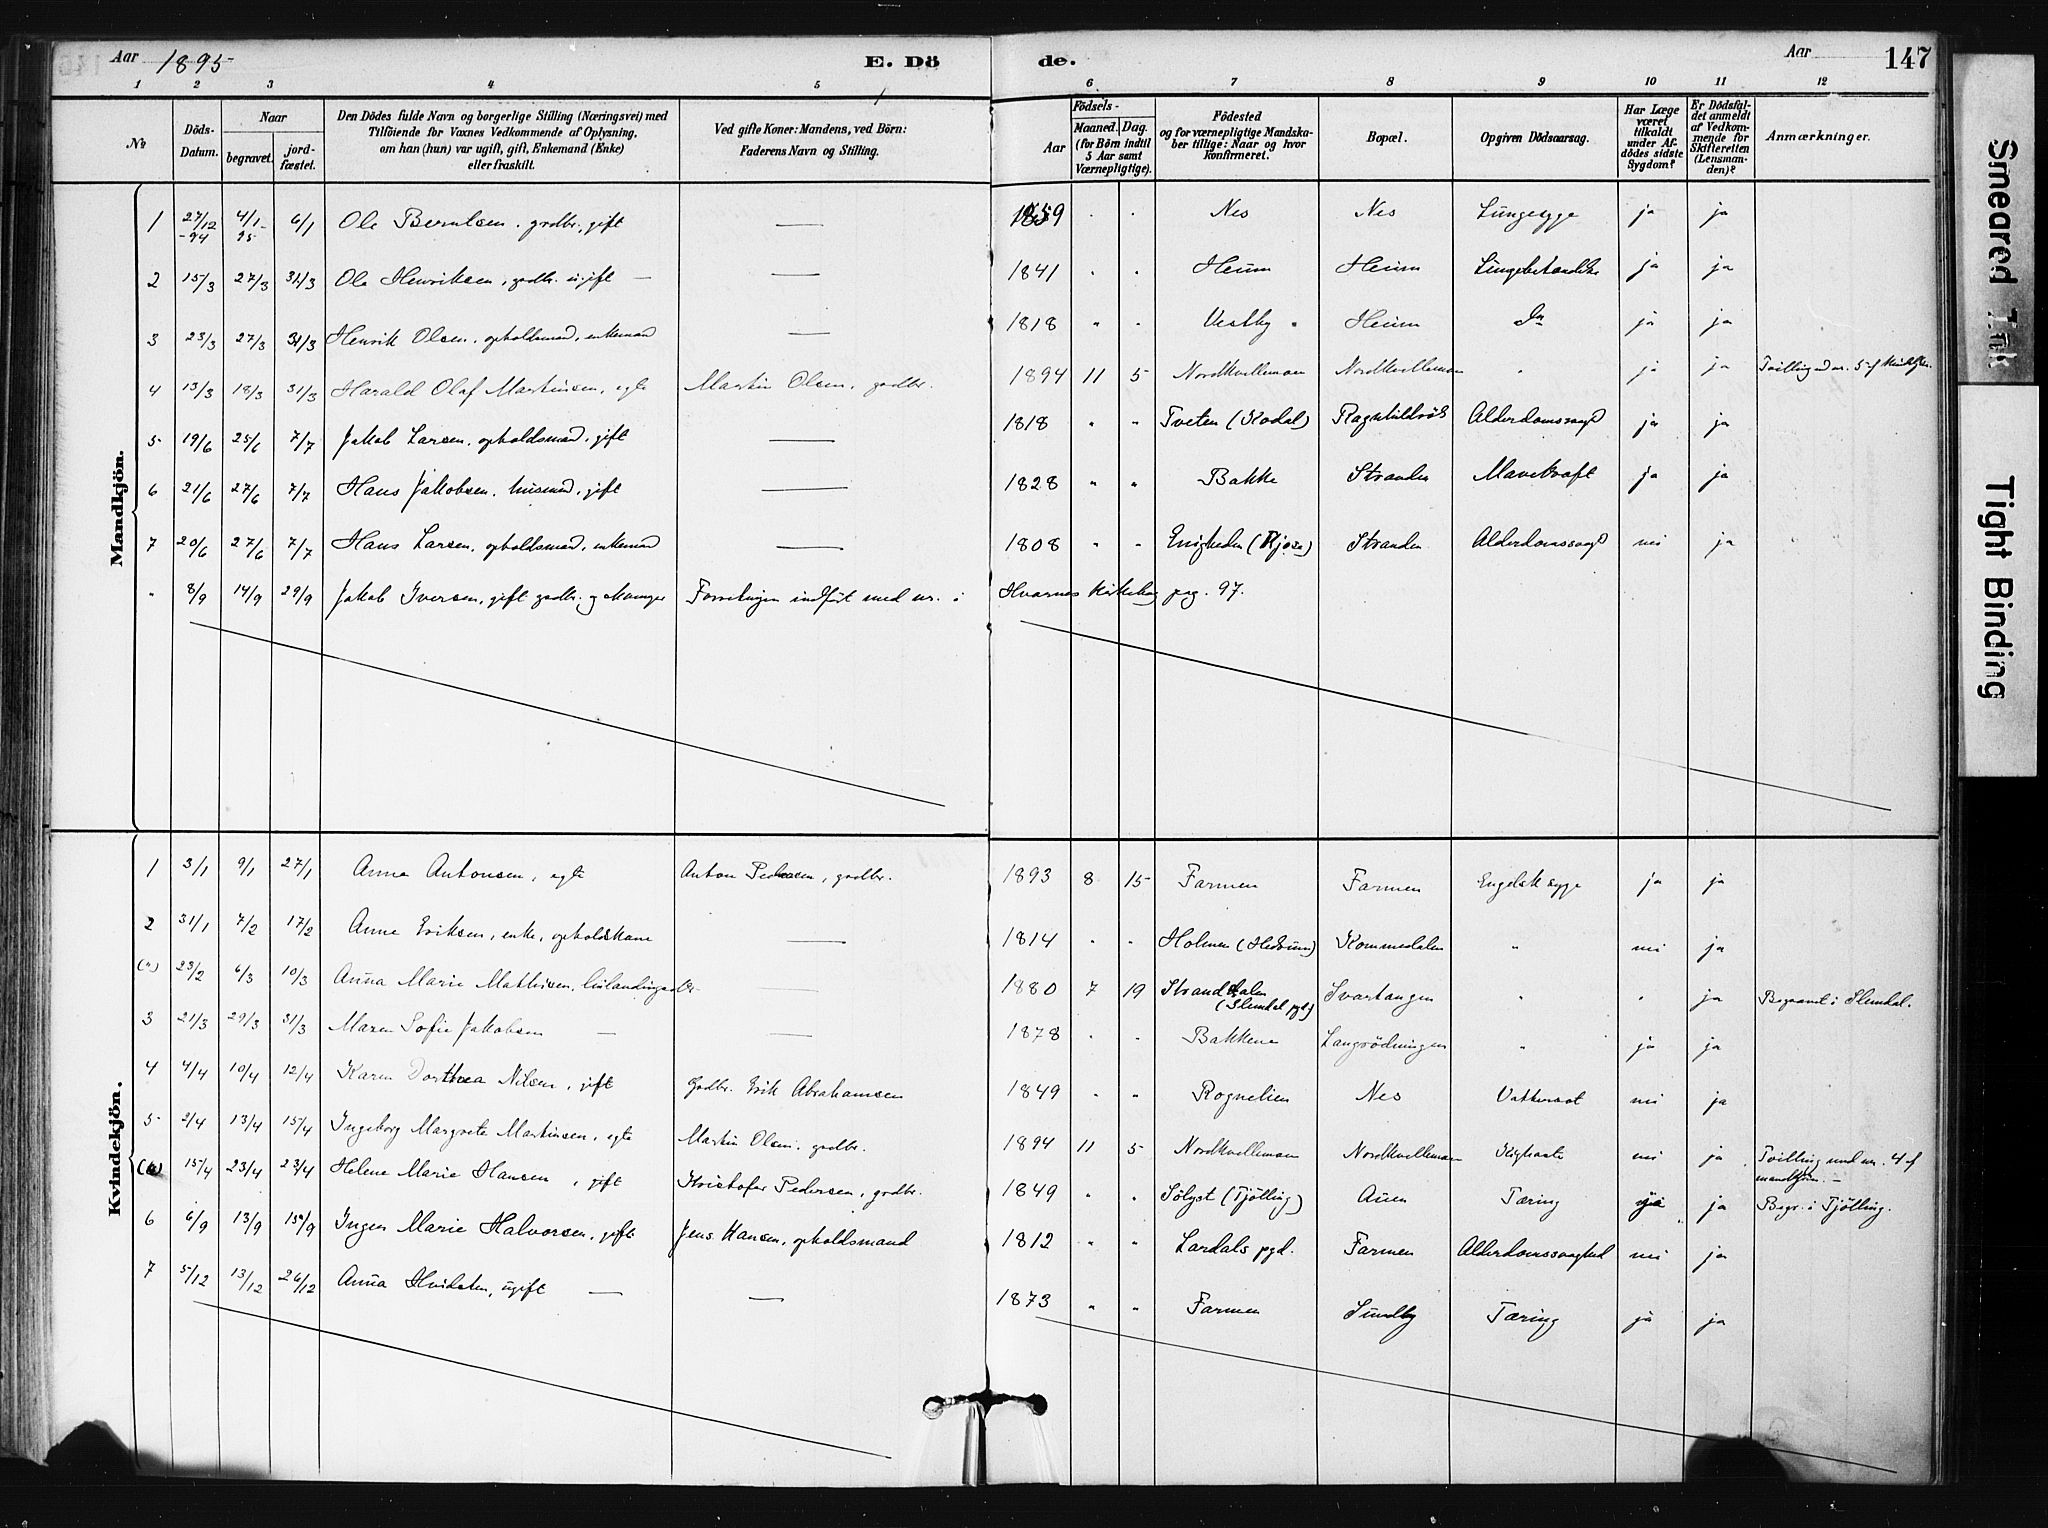 Aar 1895 E. Dö de. Aar 147
1 2 3 4 5 6 7 8 9 10 11 12
No Döds-Datum. Naar begravet. jordfæstet. Den Dödes fulde Navn og borgerlige Stilling (Næringsvei) med Tilföiende for Voxnes Vedkommende af Oplysning, om han (hun) var ugift, gift, Enkemand (Enke) eller fraskilt. Ved gifte Koner: Mandens, ved Börn: Faderens Navn og Stilling. Födsels- Aar Maaned. Dag. (for Börn indtil 5 Aar samt Værnepligtige). Födested og for værnepligtige Mandskaber tillige: Naar og hvor konfirmeret. Bopæl. Opgiven Dödsaarsag. Har Læge været tilkaldt under Afdödes sidste Sygdom? Er Dödsfaldet anmeldt af Vedkommende for Skifteretten (Lensmanden)? Anmærkninger.
Mandkjön.
1 27/12 -94 4/1 95 6/1 Ole Berntsen, grdbr., gift — 1859 " " Nes Nes Lungesyge ja ja
2 15/3 27/3 31/3 Ole Henriksen, grdbr. ugift — — 1841 " " Heum Heum Lungebetændelse ja ja
3 23/3 27/3 31/3 Henrik Olsen, opholdsmand, enkemand — 1818 " " Vestby " Heum Do ja ja
4 13/3 18/3 31/3 Harald Olaf Martinsen, egte Martin Olsen, grdbr. 1894 11 5 Nordkvelleman Nordkvelleman " ja ja Tvilling med nr. 5 af kvindekjön.
5 19/6 25/6 7/7 Jakob Larsen, opholdsmand, gift — 1818 " " Tveten (Kodal) Ragnhildröd Alderdomssvagh ja ja
6 21/6 27/6 7/7 Hans Jakobsen, husmand, gift — 1828 " " Bakke Stranden Mavekræft ja ja
7 20/6 27/6 7/7 Hans Larsen, opholdsmand, enkemand — 1808 " " Enigheden (Kjose) Stranden Alderdomssvagh nei ja
" 8/9 14/9 29/9 Jakob Iversen, gift grdbr. og Forretningen indfört med nr. i Hvarnes kirkebog pag. 97.
Kvindekjön.
1 3/1 9/1 27/1 Anna Antonsen, egte Anton Pedersen, grdbr. 1893 8 15 Farmen Farmen Engelsk syge ja ja
2 31/1 7/2 17/2 Anne Eriksen, enke, opholdskone — 1814 " " Holmen (Hedrum) Kommedalen " nei ja
(") 23/2 6/3 10/3 Anna Marie Mathisen, — 1880 7 19 Stranddalen (Slemdal pgd) Svartangen " " ja Begravet i Slemdal.
3 21/3 29/3 31/3 Maren Sofie Jakobsen — — 1878 " " Bakkene Langrödningen " ja ja
4 4/4 10/4 12/4 Karen Dorthea Nilsen, gift Grdbr. Erik Abrahamsen 1849 " " Rognelien Nes Vattersot nei ja
5 2/4 13/4 15/4 Ingeborg Margrete Martinsen, egte Martin Olsen, grdbr. 1894 11 5 Nordkvelleman Nordkvelleman Kighoste nei ja Tvilling med nr. 4 af mandkjön. —
(") 15/4 23/4 23/4 Helene Marie Hansen, gift Kristofer Pedersen, grdbr. 1849 " " Sölyst (Tjölling) Auen Tæring ja ja Begr. i Tjölling.
6 6/9 13/9 15/9 Ingen Marie Halvorsen, gift Jens Hansen, opholdsmand 1812 " " Lardals pgd. Farmen Alderdomssvaghed nei ja
7 5/12 13/12 26/12 Anna Hvidsten, ugift — — 1873 " " Farmen Sundby Tæring ja ja
Smeared Ink
Tight Binding